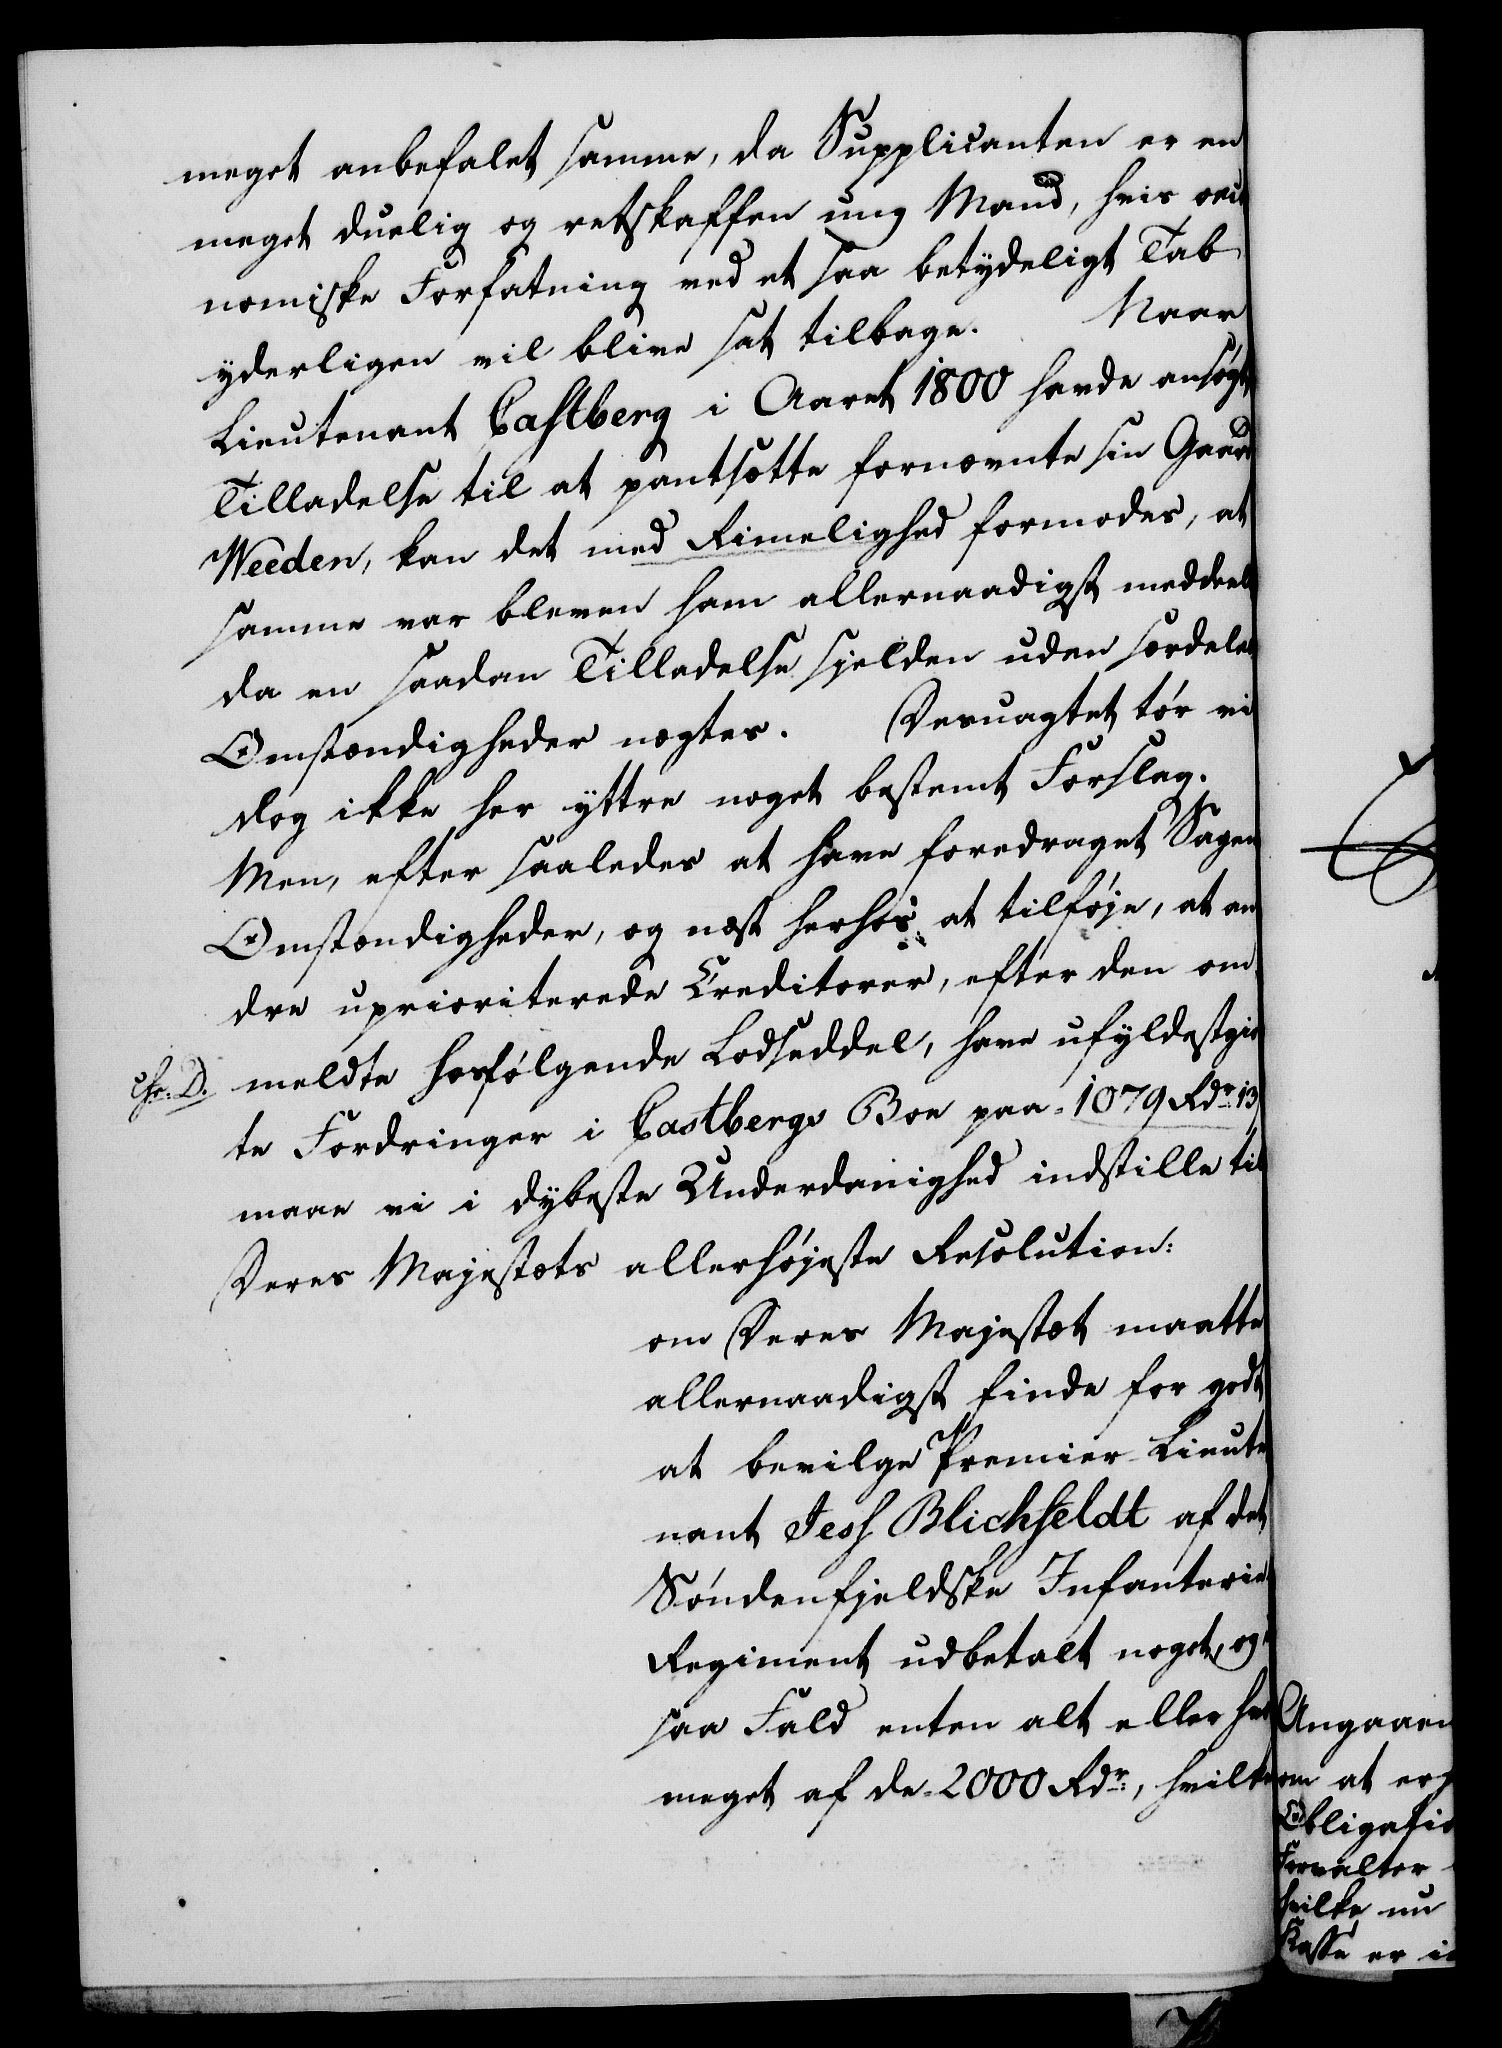 meget anbefalet samme, da Supplicanten er en
meget duelig og retskaffen ung Mand, hvis oeco
nomiske Forfatning ved et saa betydeligt Tab
yderligen vil blive sat tilbage. Naar
Lieutenant Castberg i Aaret 1800 havde ansøgt
Tilladelse til at pantsætte fornævnte sin Gaard
Weeden, kan det med Rimelighed formodes, at
samme var bleven ham allernaadigst meddeelt
da en saadan Tilladelse sjelden uden særdeles
Omstændigheder nægtes. Desuagtet tør vi
dog ikke her yttre noget bestemt Forslag.
Men, efter saaledes at have foredraget Sagens
Omstændigheder, og næst herhos at tilføje, at an
dre uprioriterede Creditorer, efter den om
chr. D. meldte hosfølgende Lodseddel, have ufyldestgior
te Fordringer i Castbergs Boe paa 1079 Rdr. 13
maae vi i dybeste Underdanighed indstille til
Deres Majestæts allerhøjeste Resolution:
om Deres Majestæt maatte
allernaadigst finde for godt
at bevilge Premier Lieute
nant Jess Blichfeldt af det
Søndenfjeldske Infanterie
Regiment udbetalt noget, og i
saa Fald enten alt eller hvor
meget af de 2000 Rdr., hvilke
Angaaen
om at er
Obligatio
Forvalter
hvilke nu
Kasse er i